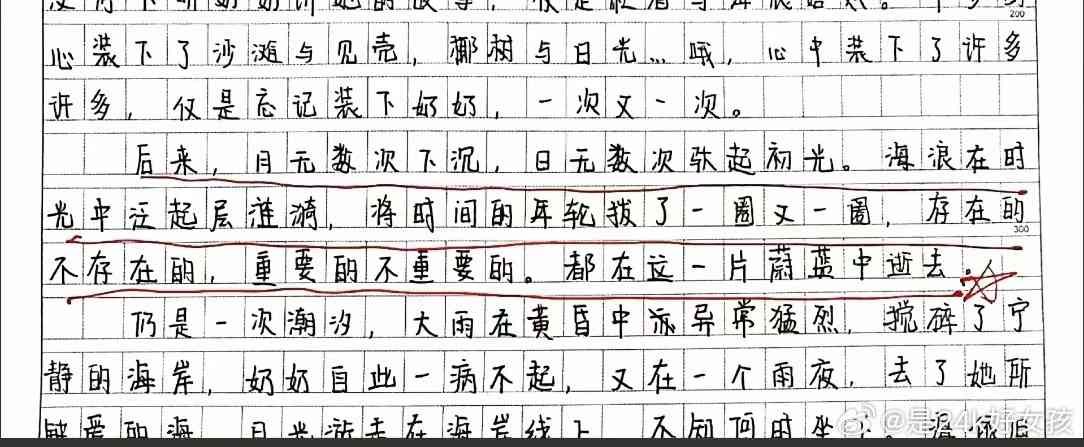 奶奶讲她的故事，
200
心装下了沙滩与见壳，椰树与日光…哦，心中装下了许多
许多，仅是忘记装下奶奶，一次又一次。
后来，月无数次下沉，日无数次驮起初光。海浪在时
光中泛起层涟漪，将时间的年轮拨了一圈又一圈，存在的
300
不存在的，重要的不重要的。都在这一片蔚蓝中逝去。
仍是一次潮汐，大雨在黄昏中亦异常猛烈，搅碎了宁
静的海岸，奶奶自此一病不起，又在一个雨夜，去了她所
爱的海 月光 在海岸线上 不知何时
@是24k好女孩